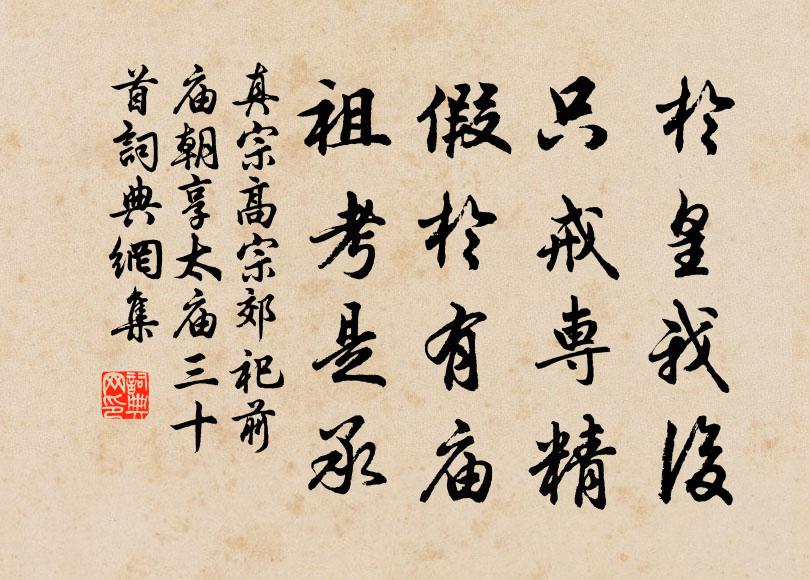 於皇我後
只戒専精
假於有庙
祖考是承
真宗高宗郊祀前
庙朝享太庙三十
首詞典網集
詞典网印